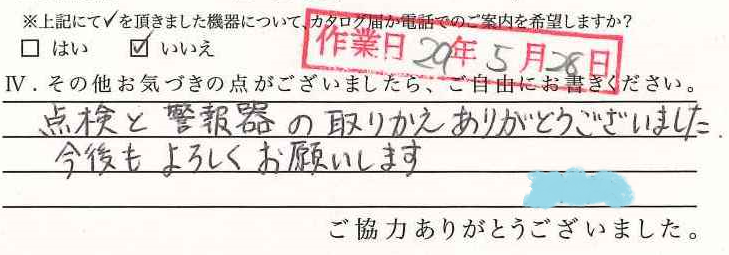 ※上記にて✓を頂きました機器について、カタログ届か電話でのご案内を希望しますか?
□ はい ☑ いいえ
作業日 29年 5月 26日
Ⅳ．その他お気づきの点がございましたら、ご自由にお書きください。
点検と警報器の取りかえありがとうございました.
今後もよろしくお願いします
ご協力ありがとうございました。